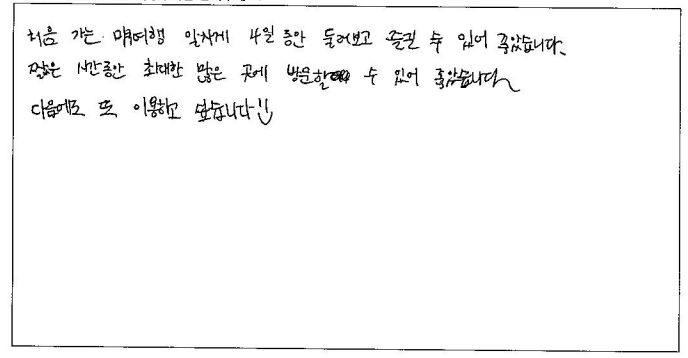 처음 가는 여행 알차게 4일 동안 둘러보고 즐길 수 있어 좋았습니다.
짧은 시간동안 최대한 많은 곳에 방문할 수 있어 좋았습니다~
다음에도 또 이용하고 싶습니다!!